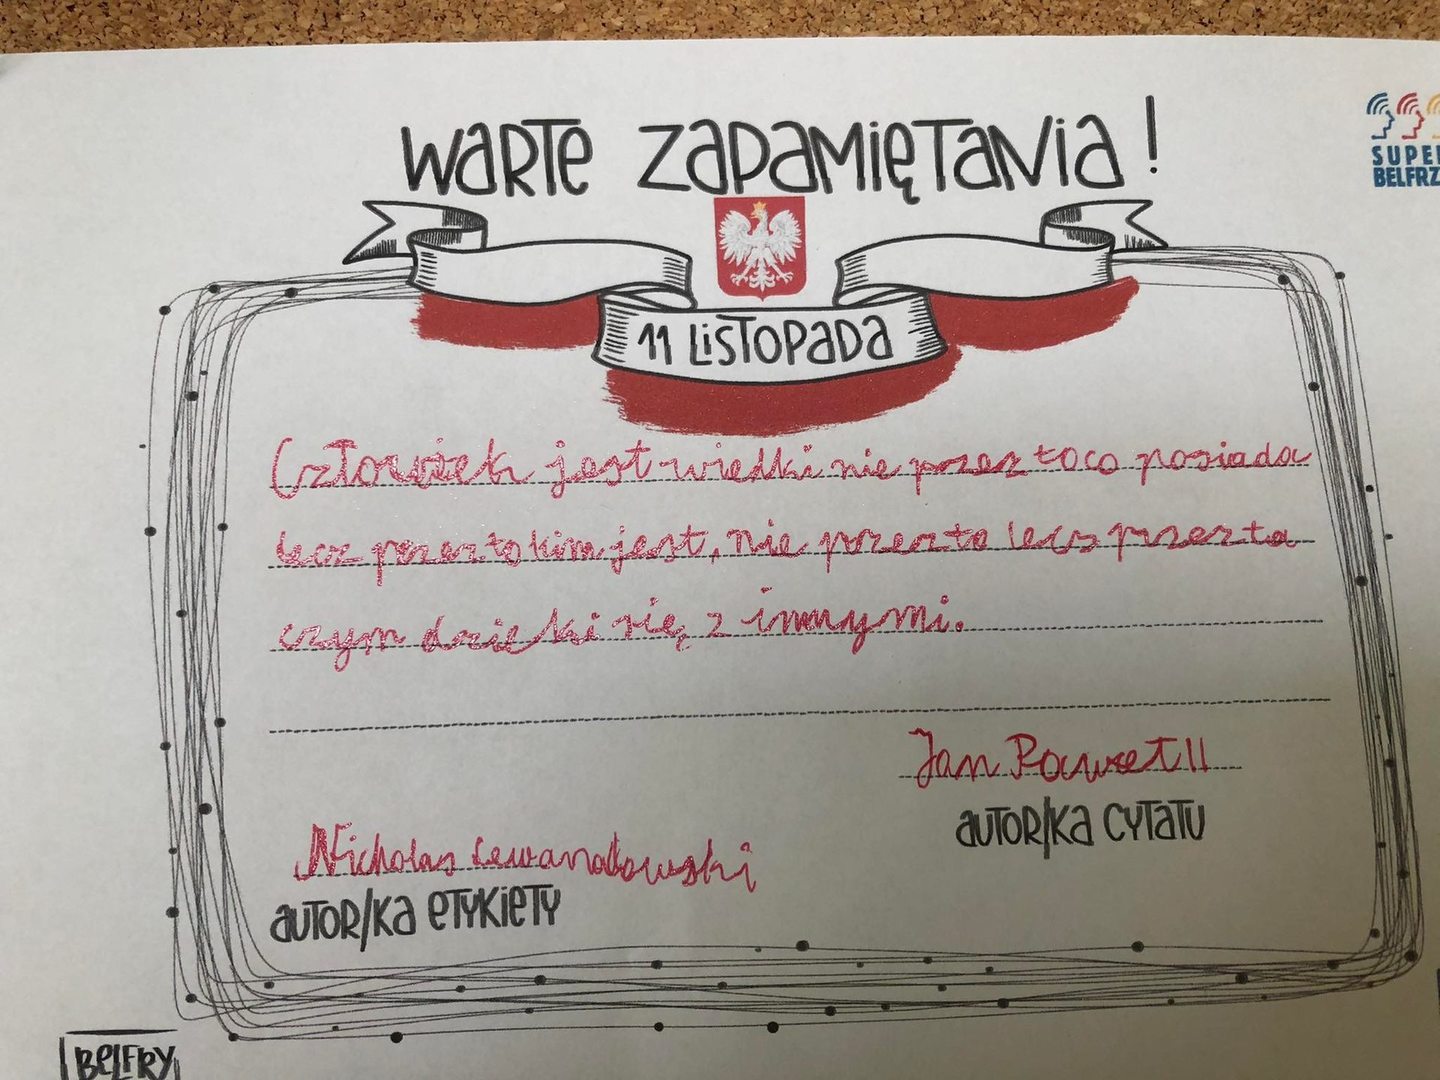 WARTE ZAPAMIĘTANIA!
SUPE
BELFRZ
11 LISTOPADA
Człowiek jest wielki nie przez to co posiada
lecz przez to kim jest, nie przez to lecz przez ta
czym dzieki się z innymi.
Jan Paweł II
AUTOR/KA CYTATU
Nicholas Lewandowski
AUTOR/KA ETYKIETY
BELFRY